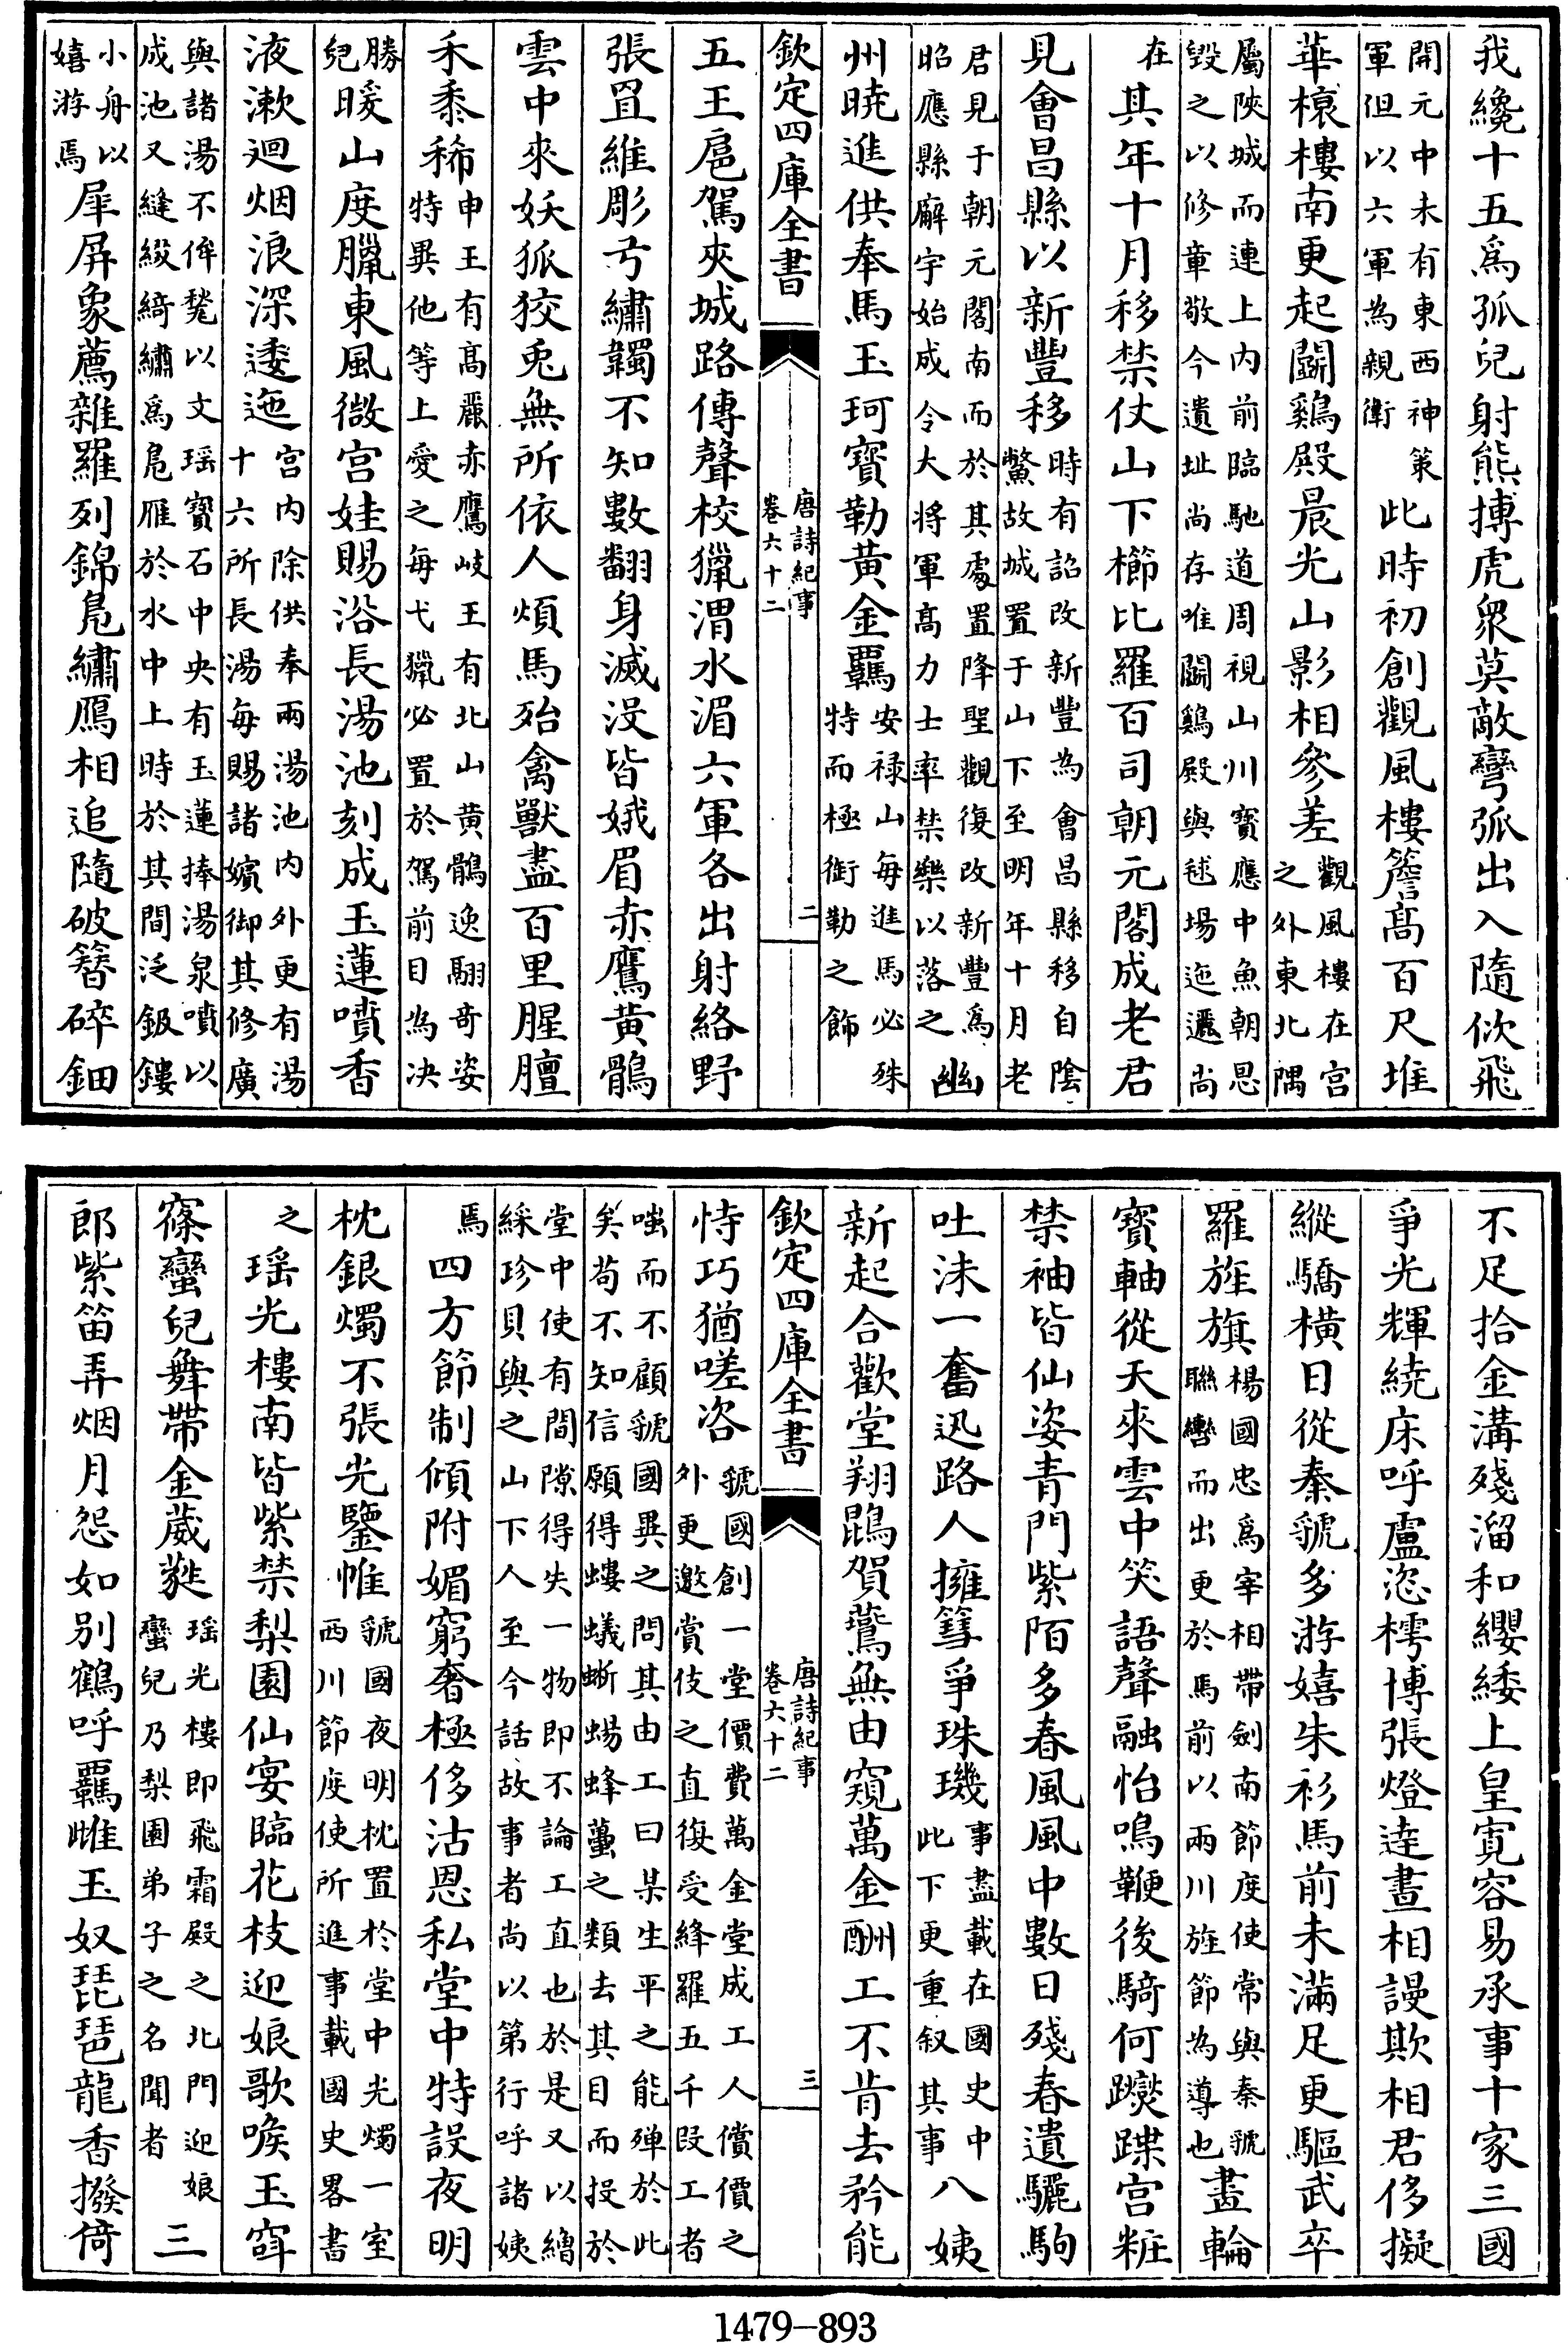 我纔十五爲孤兒射熊搏虎衆莫敵彎弧出入隨佽飛
開元中未有東西神策
軍但以六軍為親衛
此時初創觀風樓簷髙百尺堆
華榱樓南更起鬬鷄殿晨光山影相參差
觀風樓在宫
之外東北隅
屬陜城而連上内前臨馳道周視山川寶應中魚朝恩
毁之以修章敬今遺址尚存唯鬬鷄殿與毬場迤邐尚
在
其年十月移禁仗山下櫛比羅百司朝元閣成老君
見會昌縣以新豐移
時有詔改新豐為會昌縣移自陰
鱉故城置于山下至明年十月老
君見于朝元閣南而於其處置降聖觀復改新豐爲
昭應縣廨宇始成令大将軍髙力士率禁樂以落之
幽
州曉進供奉馬玉珂寳勒黄金羈
安禄山每進馬必殊
特而極銜勒之飾
欽定四庫全書
唐詩紀事
卷六十二
二
五王扈駕夾城路傳聲校獵渭水湄六軍各出射絡野
張罝維彫弓繡韣不知數翻身滅没皆娥眉赤鷹黄鶻
雲中來妖狐狡兎無所依人煩馬殆禽獸盡百里腥膻
禾黍稀
申王有髙麗赤鷹岐王有北山黄鶻逸翮奇姿
特異他等上愛之每弋獵必置於駕前目為决
勝
兒
暖山度臘東風微宫娃賜浴長湯池刻成玉蓮噴香
液漱迴烟浪深逶迤
宫内除供奉兩湯池内外更有湯
十六所長湯每賜諸嬪御其修廣
與諸湯不侔甃以文瑶寳石中央有玉蓮捧湯泉噴以
成池又縫綴綺繡爲鳬雁於水中上時於其間泛鈒鏤
小舟以
嬉游焉
犀屏象薦雜羅列錦鳬繡鴈相追隨破簪碎鈿
不足拾金溝殘溜和纓緌上皇寛容易承事十家三國
爭光輝繞床呼盧恣樗博張燈達晝相謾欺相君侈擬
縱驕横日從秦虢多游嬉朱衫馬前未滿足更驅武卒
羅旌旗
楊國忠爲宰相帶劍南節度使常與秦虢
聯轡而出更於馬前以兩川旌節為導也
畫輪
寳軸從天來雲中笑語聲融怡鳴鞭後騎何躞蹀宫粧
禁袖皆仙姿青門紫陌多春風風中數日殘春遺驪駒
吐沫一奮迅路人擁篲爭珠璣
事盡載在國史中
此下更重叙其事
八姨
新起合歡堂翔鵾賀鷰無由窺萬金酬工不肯去矜能
欽定四庫全書
唐詩紀事
卷六十二
三
恃巧猶嗟咨
虢國創一堂價費萬金堂成工人償價之
外更邀賞伎之直復受絳羅五千叚工者
嗤而不顧虢國異之問其由工曰某生平之能殫於此
矣茍不知信願得螻蟻蜥蜴蜂蠆之類去其目而投於
堂中使有間隙得失一物即不論工直也於是又以繒
綵珍貝與之山下人至今話故事者尚以第行呼諸姨
焉
四方節制傾附媚窮奢極侈沽恩私堂中特設夜明
枕銀燭不張光鑒帷
虢國夜明枕置於堂中光燭一室
西川節度使所進事載國史畧書
之
瑶光樓南皆紫禁梨園仙宴臨花枝迎娘歌喉玉窈
窱蠻兒舞帶金葳蕤
瑶光樓即飛霜殿之北門迎娘
蠻兒乃梨園弟子之名聞者
三
郎紫笛弄烟月怨如别鶴呼羈雌玉奴琵琶龍香撥倚
1479—893